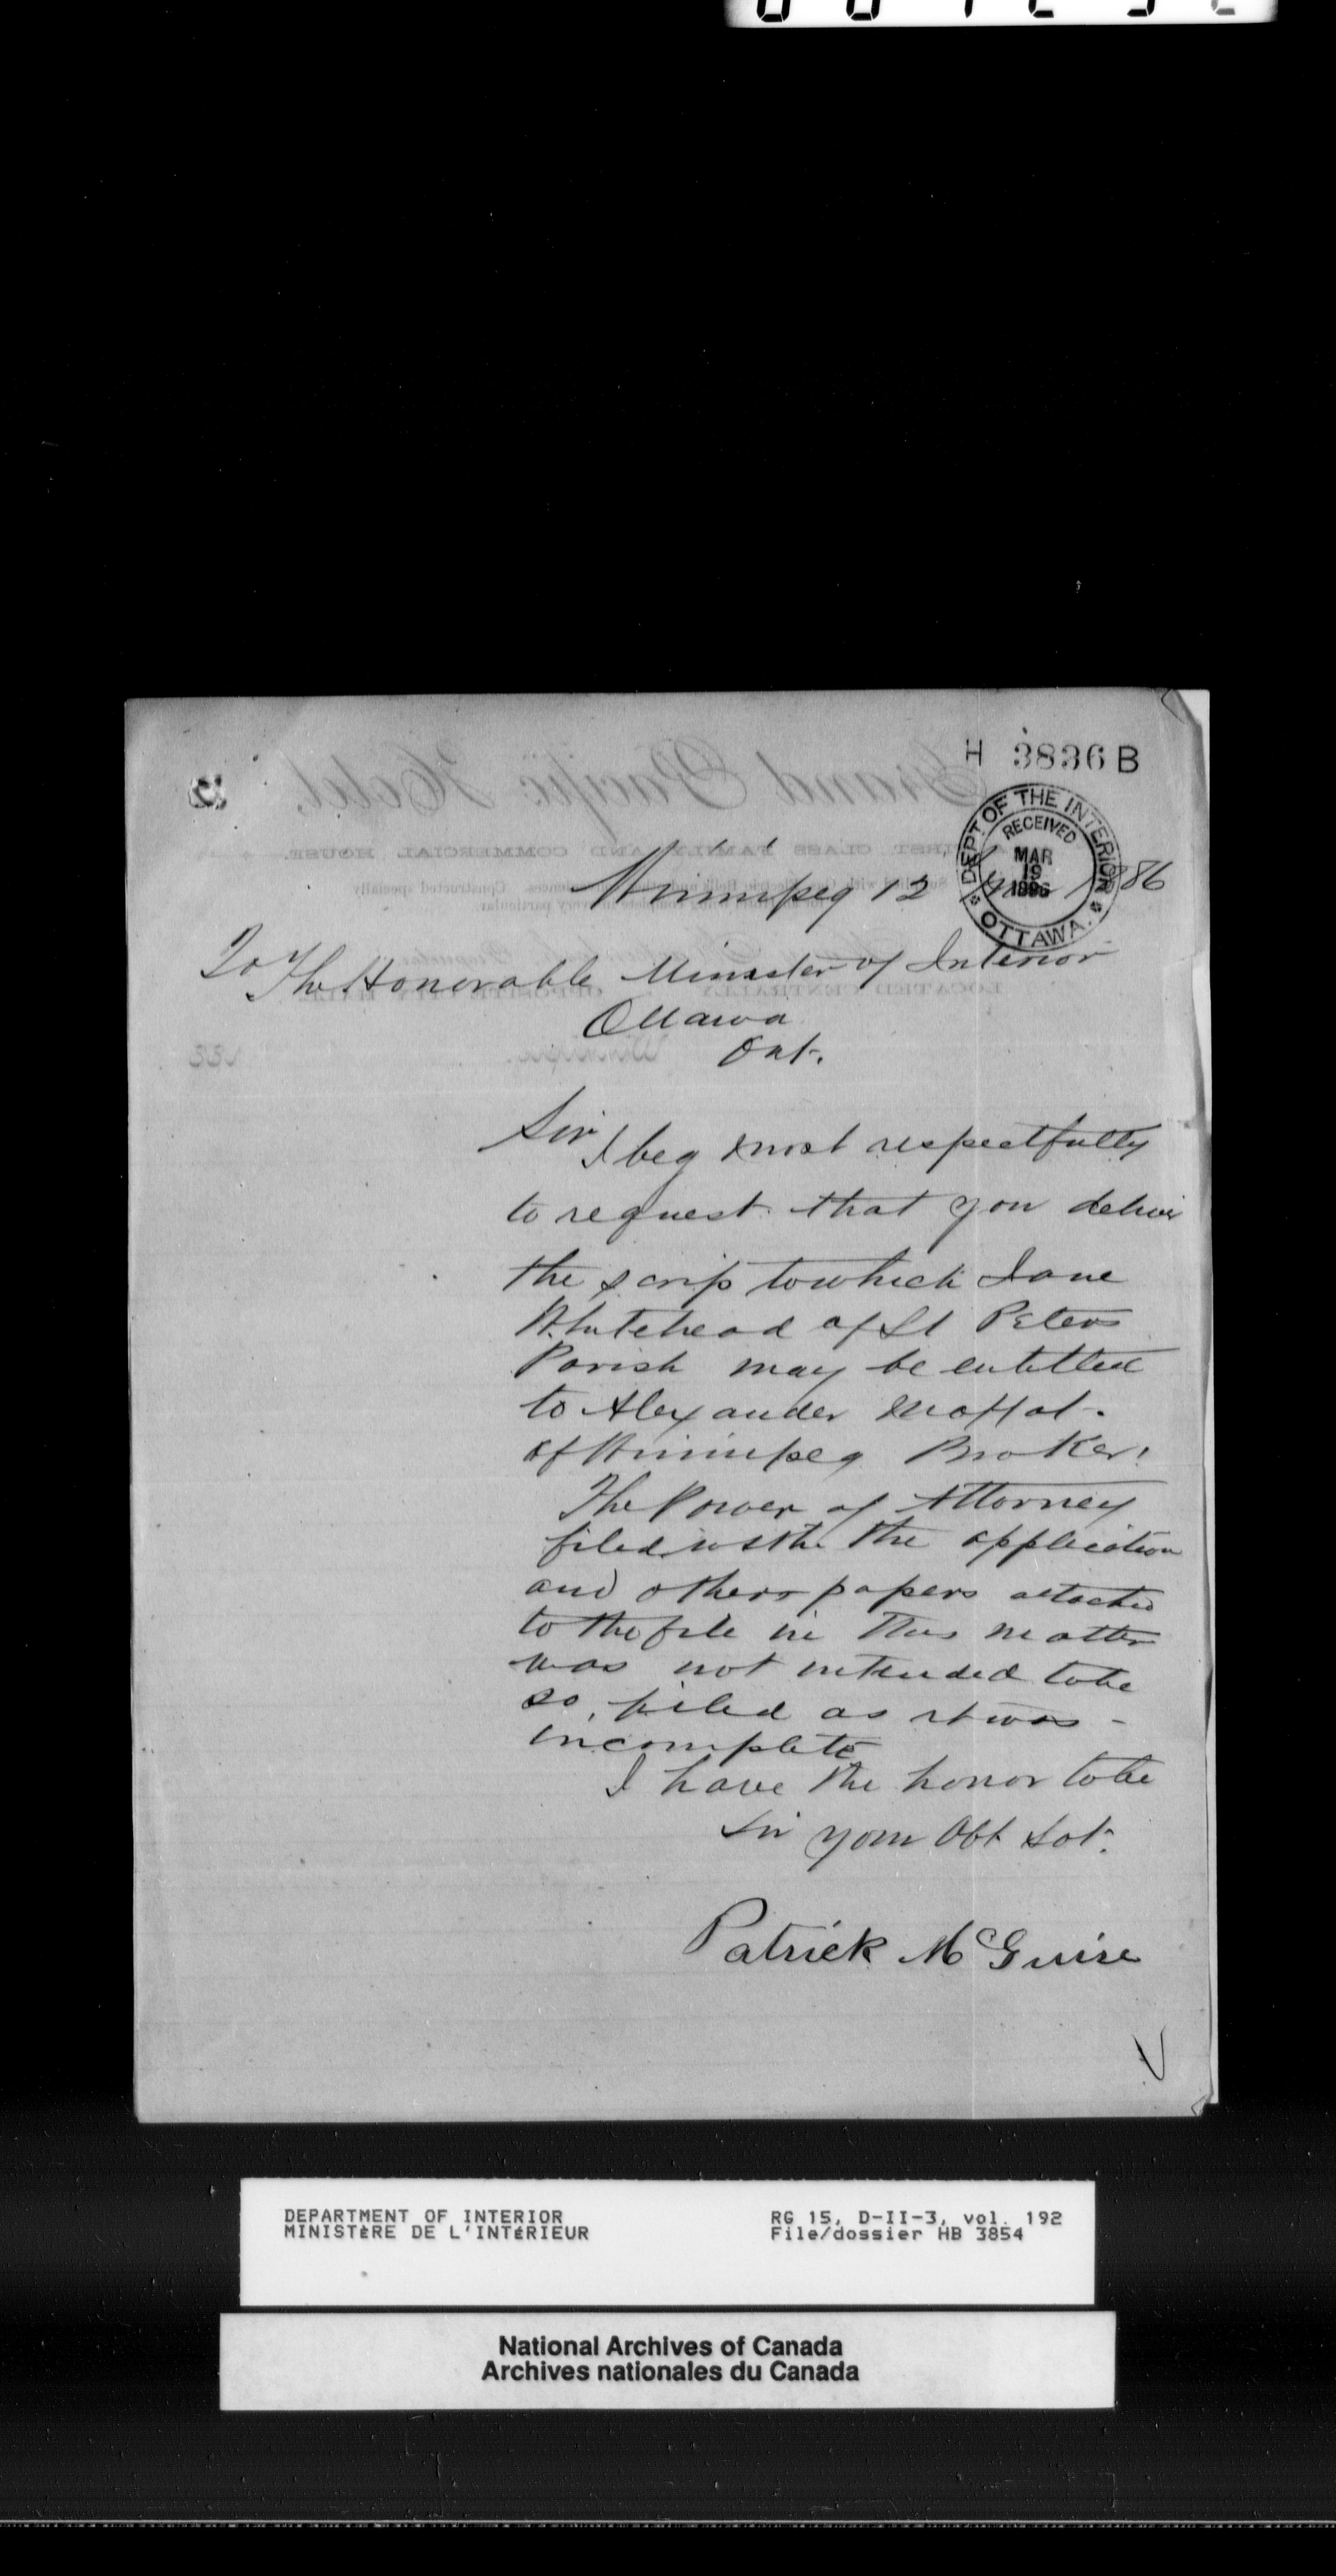 H 3836 B
Grand Pacific Hotel.
FIRST CLASS FAMILY AND COMMERCIAL HOUSE.
DEPT OF THE INTERIOR
RECEIVED
MAR
19
1886
OTTAWA.
Winnipeg 12 Mar 1886
To The Honorable Minister of Interior
Ottawa
Ont.
Sir
I beg most respectfully
to request that you deliver
the scrip to which Jane
Whitehead of St Peters
Parish may be entitled
to Alexander Moffat.
of Winnipeg Broker.
The Power of Attorney
filed with the application
and others papers attached
to the file in this matter
was not intended to be
so filed as it was -
incomplete
I have the honor to be
Sir your Obt Svt.
Patrick McGuire
DEPARTMENT OF INTERIOR
MINISTÈRE DE L'INTÉRIEUR
RG 15, D-II-3, vol. 192
File/dossier HB 3854
National Archives of Canada
Archives nationales du Canada